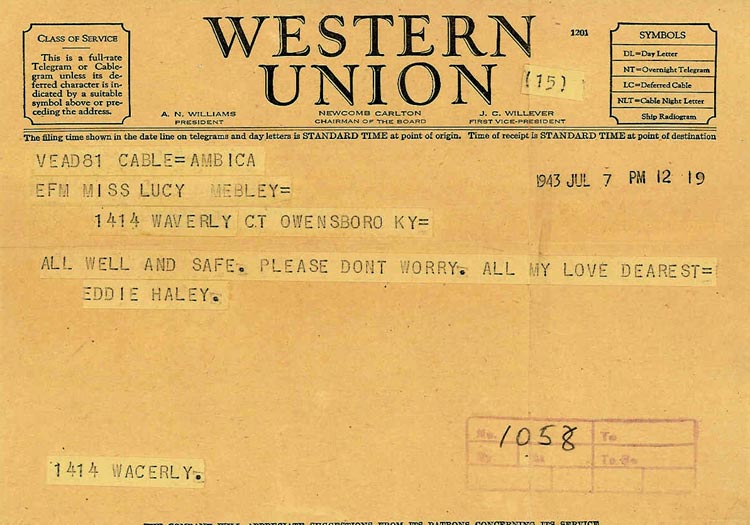 CLASS OF SERVICE
This is a full-rate
Telegram or Cable-
gram unless its de-
ferred character is in-
dicated by a suitable
symbol above or pre-
ceding the address.
WESTERN
UNION
1201
(15)
A. N. WILLIAMS
PRESIDENT
NEWCOMB CARLTON
CHAIRMAN OF THE BOARD
J. C. WILLEVER
FIRST VICE-PRESIDENT
SYMBOLS
DL=Day Letter
NT=Overnight Telegram
LC=Deferred Cable
NLT=Cable Night Letter
Ship Radiogram
The filing time shown in the date line on telegrams and day letters is STANDARD TIME at point of origin. Time of receipt is STANDARD TIME at point of destination
VEAD81 CABLE=AMBICA
1943 JUL 7 PM 12 19
EFM MISS LUCY MEBLEY=
1414 WAVERLY CT OWENSBORO KY=
ALL WELL AND SAFE. PLEASE DONT WORRY. ALL MY LOVE DEAREST=
EDDIE HALEY.
No. 1058 To
By At To Be
1414 WACERLY.
THE COMPANY WILL APPRECIATE SUGGESTIONS FROM ITS PATRONS CONCERNING ITS SERVICE